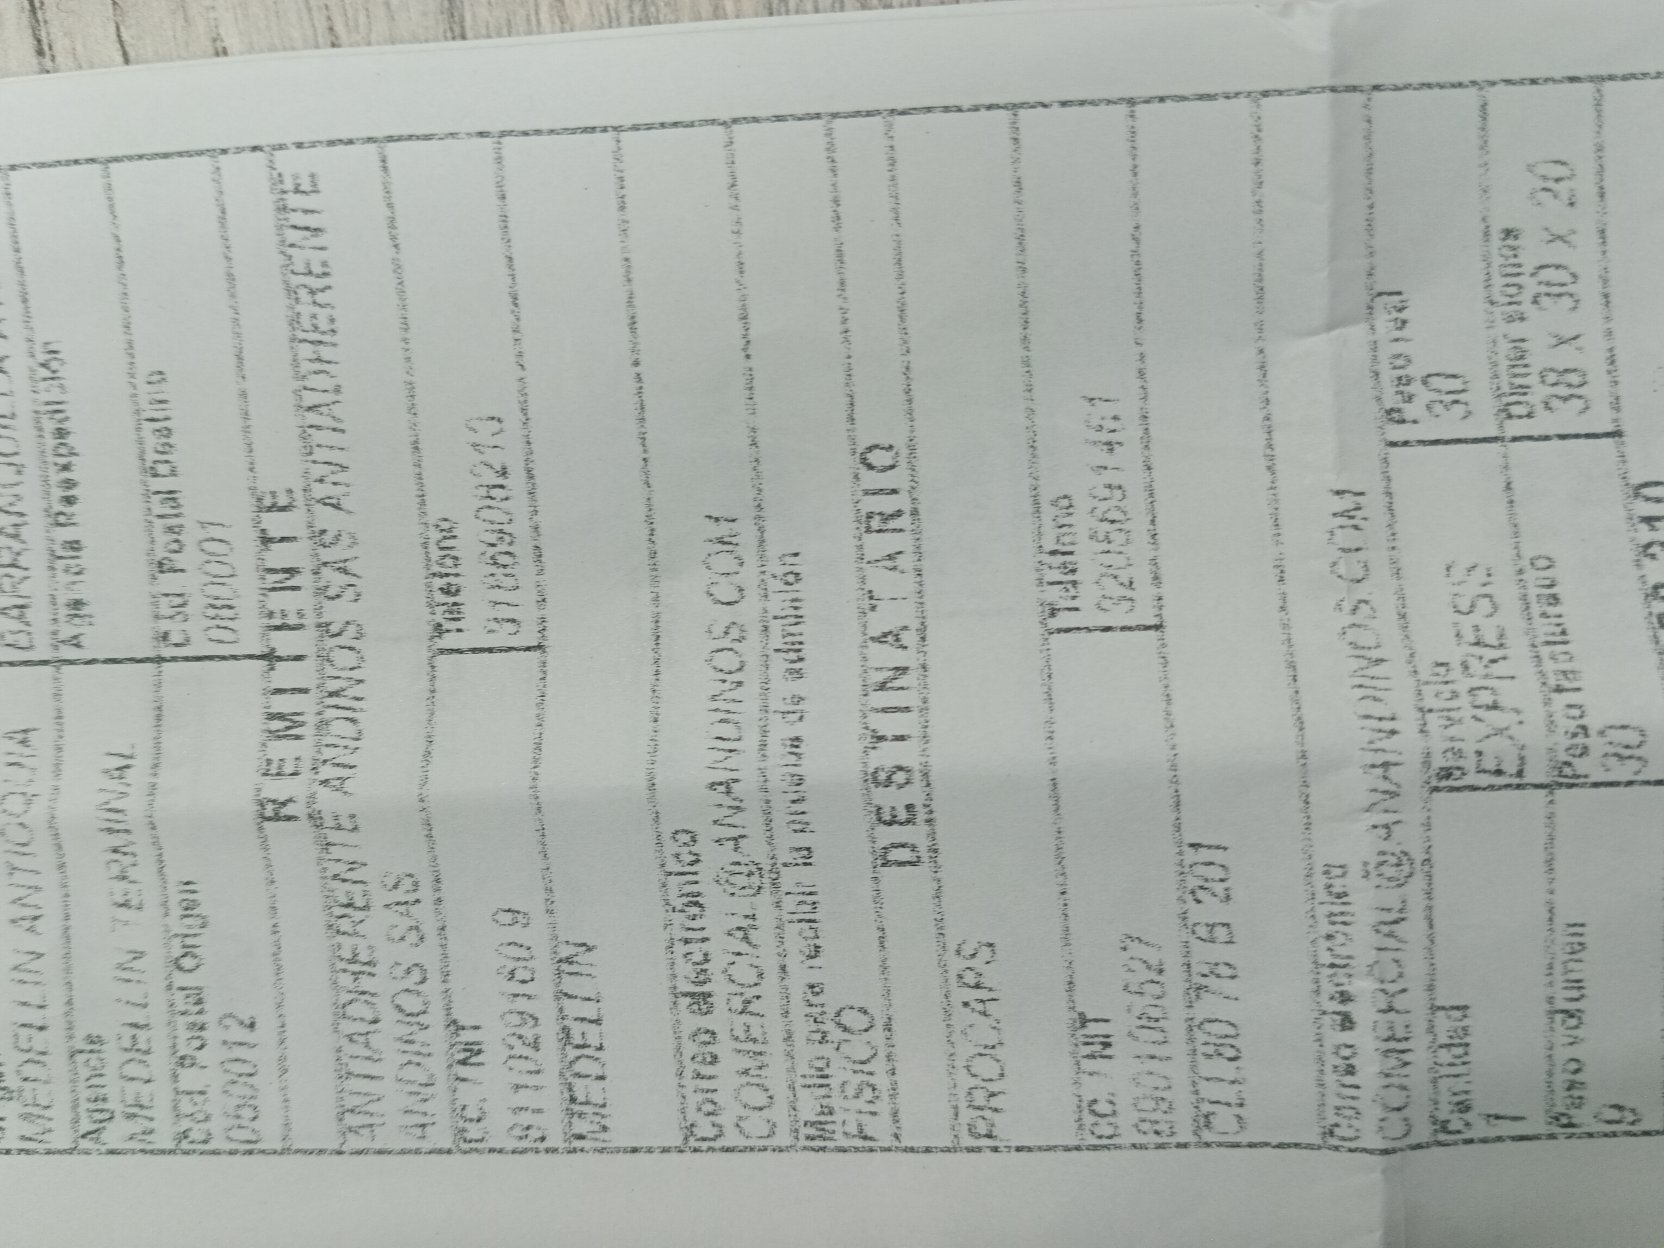 MEDELLIN ANTIOQUIA
Agencia
MEDELLIN TERMINAL
Agencia Reexpedición
Cod. Postal Origen
Cod. Postal Destino
080001
REMITENTE
ANTIADHERENTE ANDINOS SAS ANTIADHERENTE
ANDINOS SAS
CC / NIT
Teléfono
MEDELLIN
Correo electrónico
COMERCIAL@ANANDINOS.COM
Medio para recibir la prueba de admisión
FISICO
DESTINATARIO
PROCAPS
CC / NIT
Teléfono
890106527
3205691461
CLL 80 78 B 201
Correo electrónico
COMERCIAL@ANANDINOS.COM
Cantidad
Servicio
Peso real
1
EXPRESS
30
Peso volumen
Peso facturado
Dimensiones
0
30
38 X 30 X 20